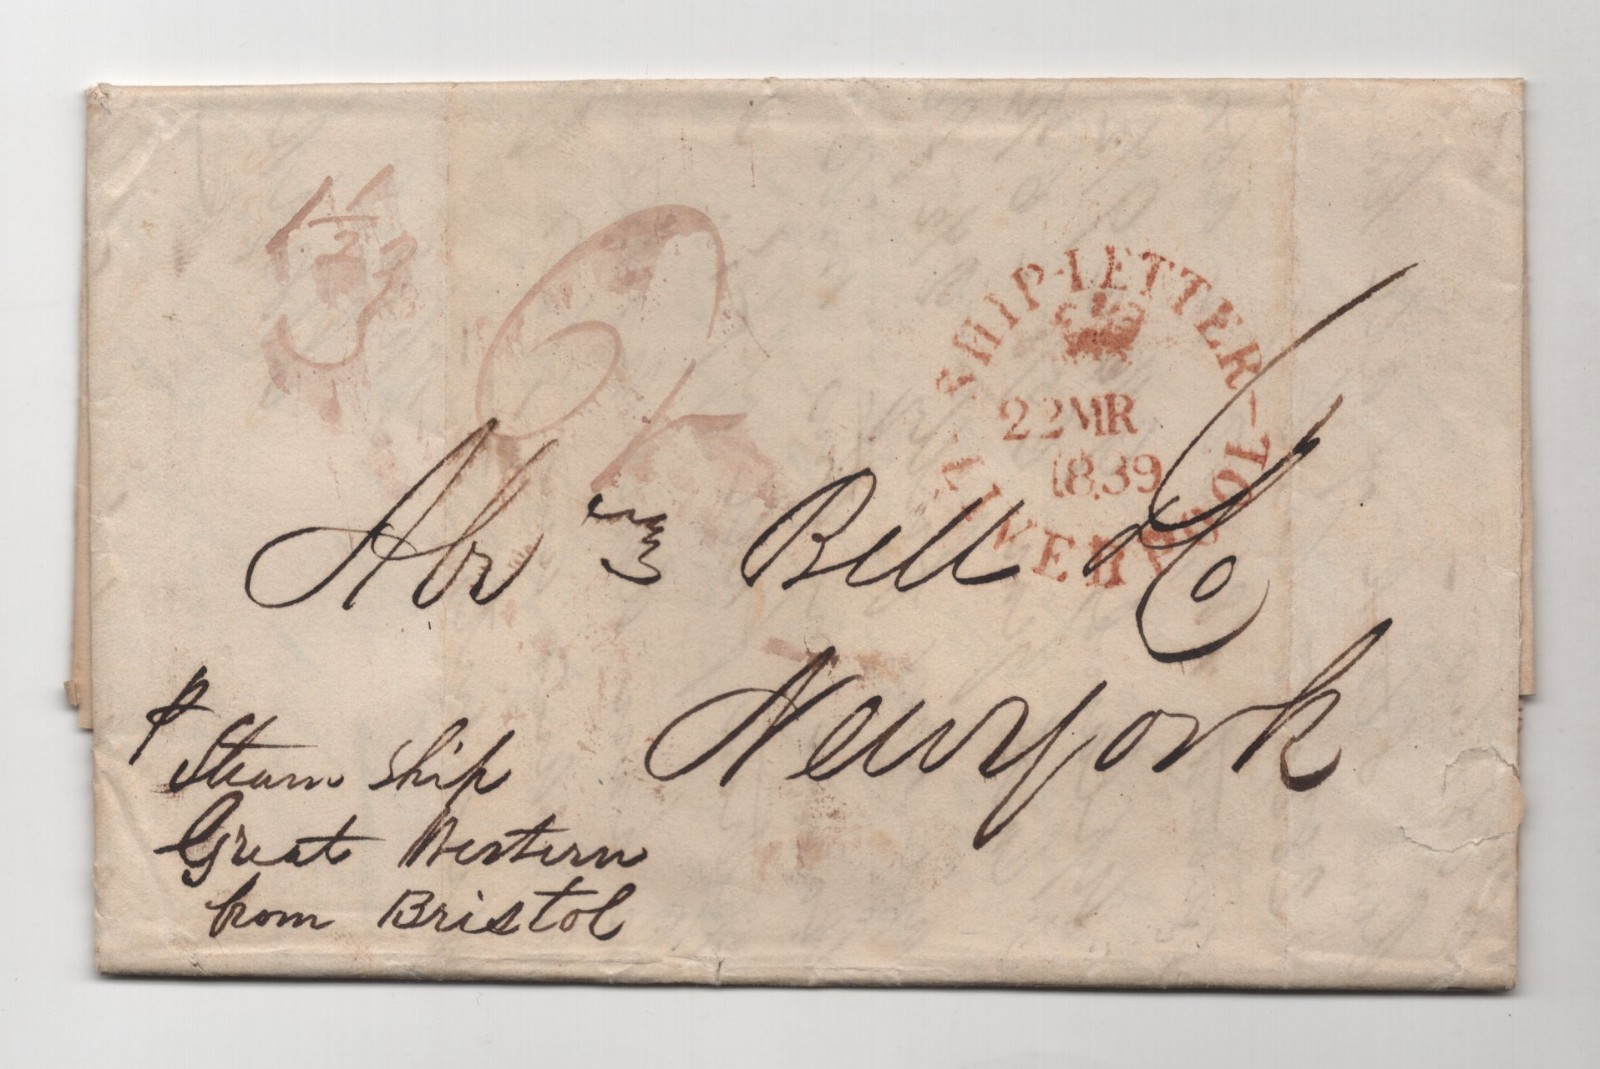 SHIP-LETTER
22MR
1839
LIVERPOOL
Abrm Bell & Co
Newyork
P
Steam ship
Great Western
from Bristol